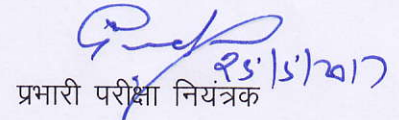 25/5/2017
प्रभारी परीक्षा नियंत्रक